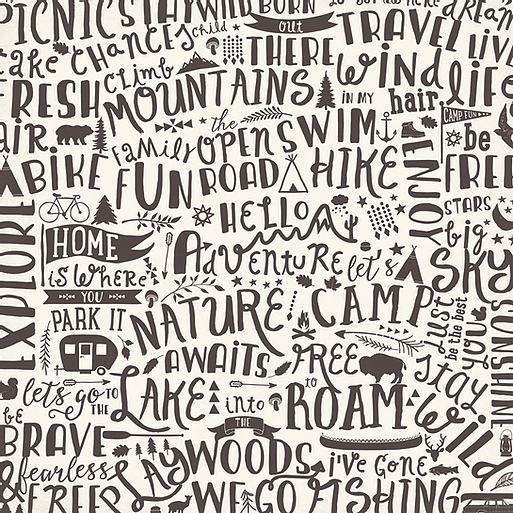 PICNICS STAY WILD BORN
out
THERE
TRAVEL
LIVE
take CHANCES
child
climb
MOUNTAINS
Wind
IN MY
hair
life
FRESH
air.
the
family
OPENS
SWIM
CAMP FUN
be
FREE
BIKE
FUN
ROAD
HIKE
ENJOY
STARS
EXPLORE
HELLO
ADVENTURE
let's
CAMP
big
SKY
HOME
is Where
YOU
PARK IT
NATURE
AWAITS
FREE
to
ROAM
Just
be the best
YOU
SUNSHINE
stay
Wild
let's go TO
THE
LAKE
into
THE
WOODS
be
BRAVE
fearless
& FREE
LAY
i've GONE
WE GO FISHING